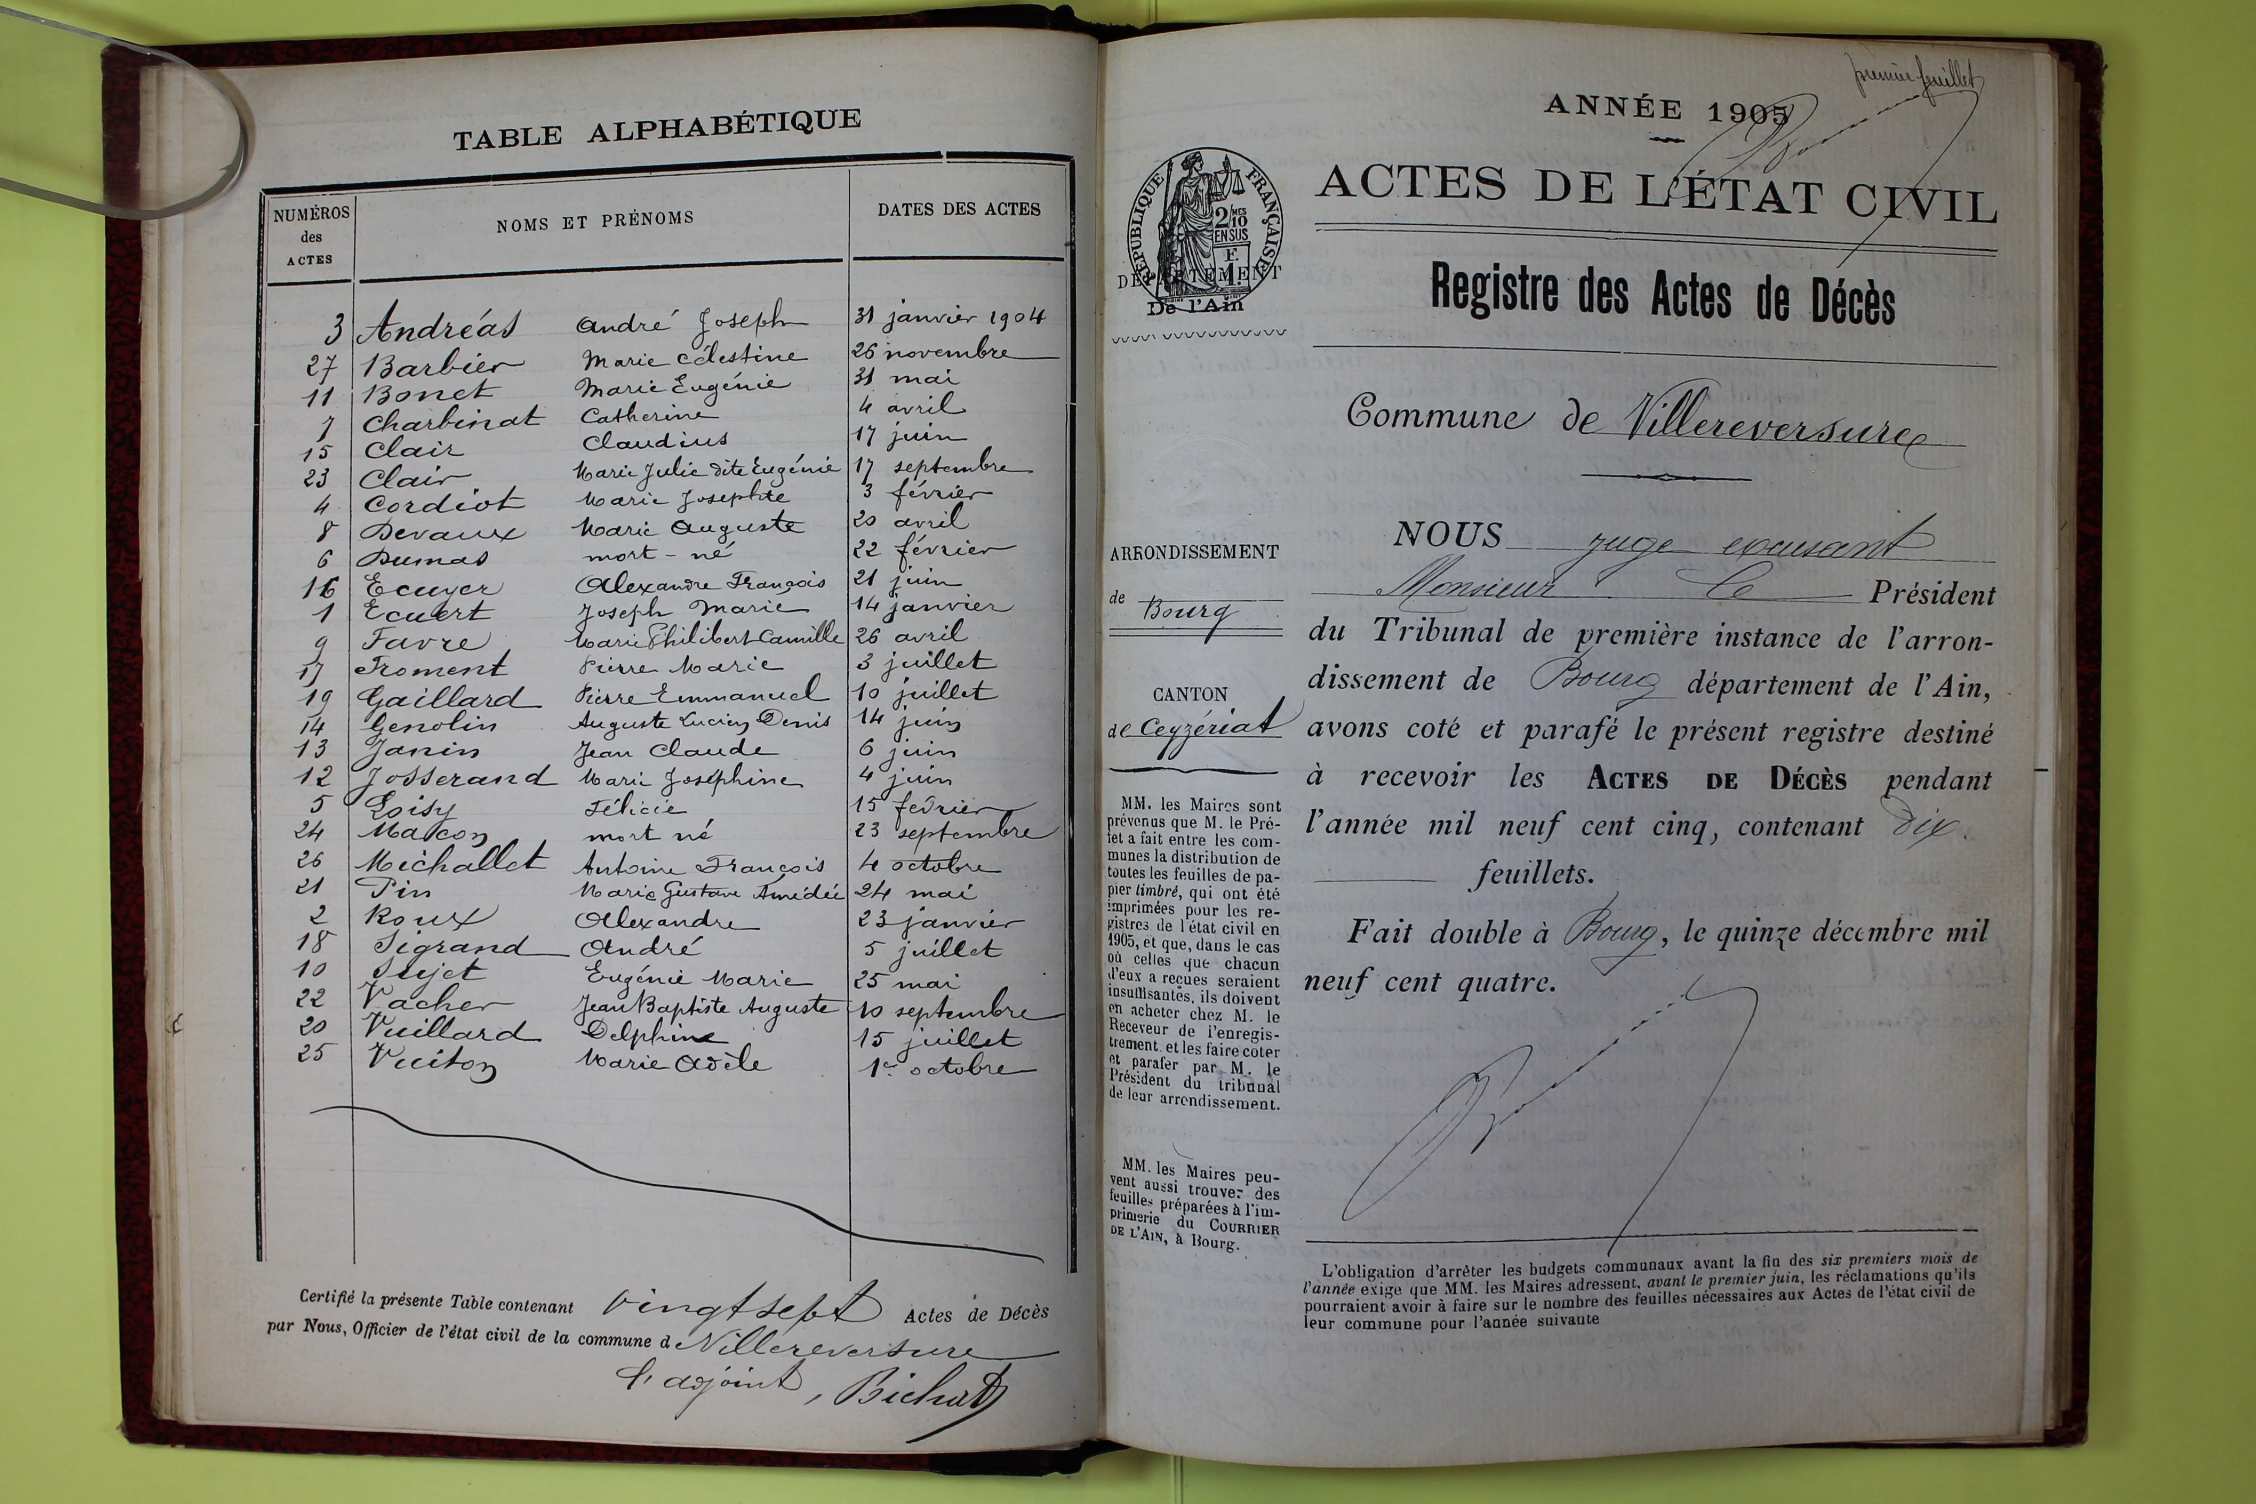 TABLE ALPHABÉTIQUE
NUMÉROS des ACTES
NOMS ET PRÉNOMS
DATES DES ACTES
3 Andréas André Joseph 31 janvier 1904
27 Barbier Marie Célestine 26 novembre
11 Bonet Marie Eugénie 31 mai
7 Charbinat Catherine 4 avril
15 Clair Claudius 17 juin
23 Clair Marie Julie dite Eugénie 17 septembre
4 Cordiot Marie Josephte 3 février
8 Devaux Marie Auguste 20 avril
6 Dumas mort-né 22 février
16 Ecuyer Alexandre François 21 juin
1 Ecuert Joseph Marie 14 janvier
9 Favre Marie Philibert Camille 26 avril
17 Froment Pierre Marie 3 juillet
19 Gaillard Pierre Emmanuel 10 juillet
14 Genolin Auguste Lucien Denis 14 juin
13 Janin Jean Claude 6 juin
12 Josserand Marie Joséphine 4 juin
5 Loisy Félicie 15 février
24 Macon mort né 23 septembre
26 Michallet Antoine François 4 octobre
21 Pin Marie Gustave Amédée 24 mai
2 Roux Alexandre 23 janvier
18 Sigrand André 5 juillet
10 Sujet Eugénie Marie 25 mai
22 Vacher Jean Baptiste Auguste 10 septembre
20 Vuillard Delphine 15 juillet
25 Vuiton Marie Adèle 1er octobre
Certifié la présente Table contenant vingt sept Actes de Décès
par Nous, Officier de l'état civil de la commune d Villereversure
L'adjoint, Bichat
premier feuillet
ANNÉE 1905
ACTES DE L'ÉTAT CIVIL
RÉPUBLIQUE FRANÇAISE
2/10 MES
EN SUS
F.
1.
DÉPARTEMENT
De l'Ain
Registre des Actes de Décès
Commune de Villereversure
ARRONDISSEMENT
de Bourg
CANTON
de Ceyzériat
MM. les Maires sont
prévenus que M. le Pré-
fet a fait entre les com-
munes la distribution de
toutes les feuilles de pa-
pier timbré, qui ont été
imprimées pour les re-
gistres de l'état civil en
1905, et que, dans le cas
où celles que chacun
d'eux a reçues seraient
insuffisantes, ils doivent
en acheter chez M. le
Receveur de l'enregis-
trement, et les faire coter
et parafer par M. le
Président du tribunal
de leur arrondissement.
MM. les Maires peu-
vent aussi trouver des
feuilles préparées à l'im-
primerie du COURRIER
DE L'AIN, à Bourg.
NOUS juge excusant
Monsieur le Président
du Tribunal de première instance de l'arron-
dissement de Bourg département de l'Ain,
avons coté et parafé le présent registre destiné
à recevoir les ACTES DE DÉCÈS pendant
l'année mil neuf cent cinq, contenant dix
feuillets.
Fait double à Bourg, le quinze décembre mil
neuf cent quatre.
L'obligation d'arrêter les budgets communaux avant la fin des six premiers mois de
l'année exige que MM. les Maires adressent, avant le premier juin, les réclamations qu'ils
pourraient avoir à faire sur le nombre des feuilles nécessaires aux Actes de l'état civil de
leur commune pour l'année suivante